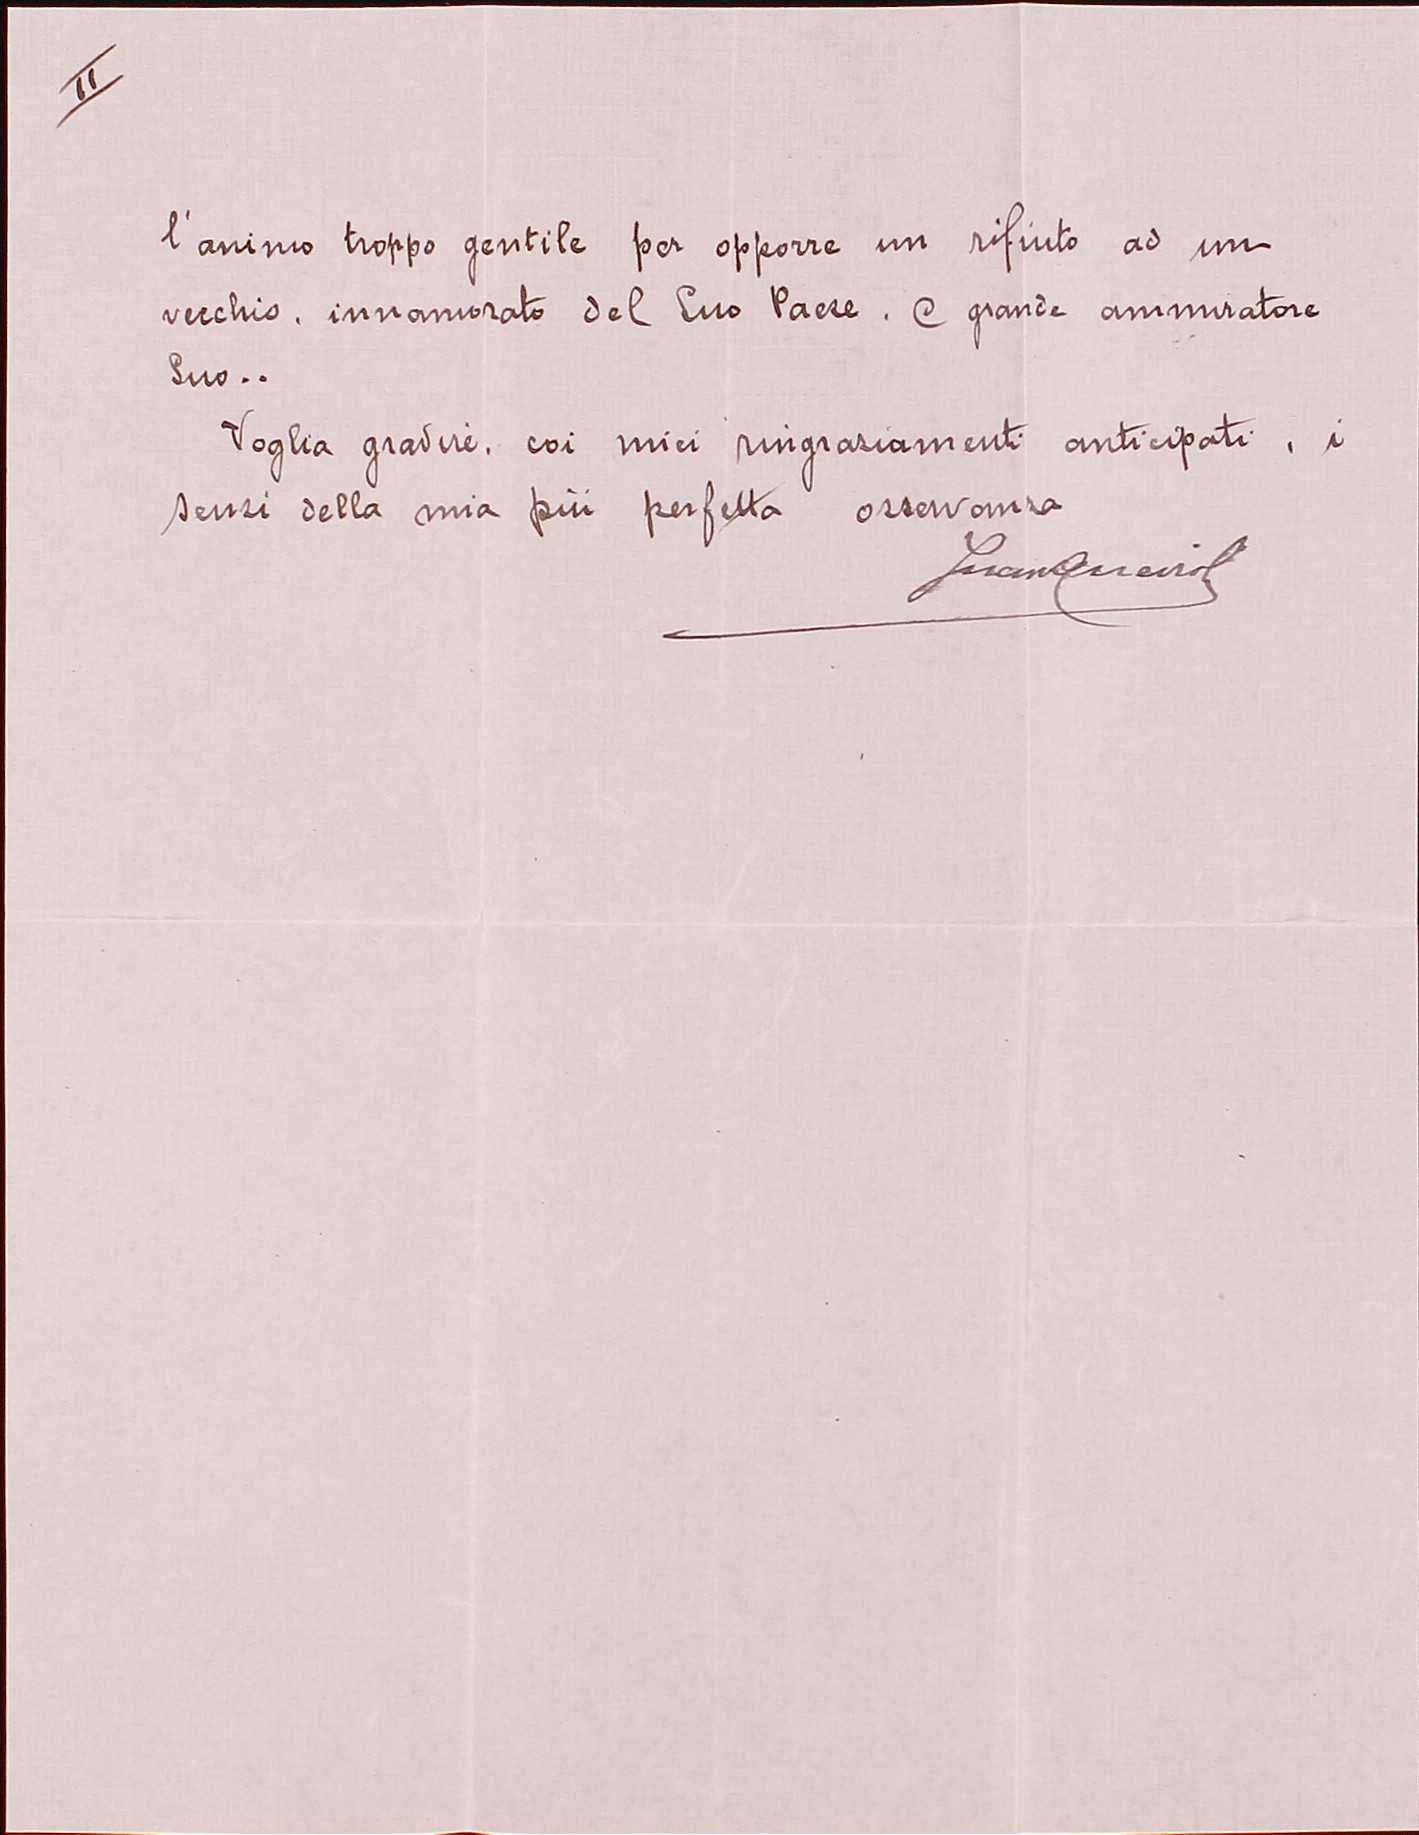 II
l'animo troppo gentile per opporre un rifiuto ad un
vecchio, innamorato del Suo Paese, e grande ammiratore
Suo..
Voglia gradire, coi miei ringraziamenti anticipati, i
sensi della mia più perfetta osservanza
Juan Queirol